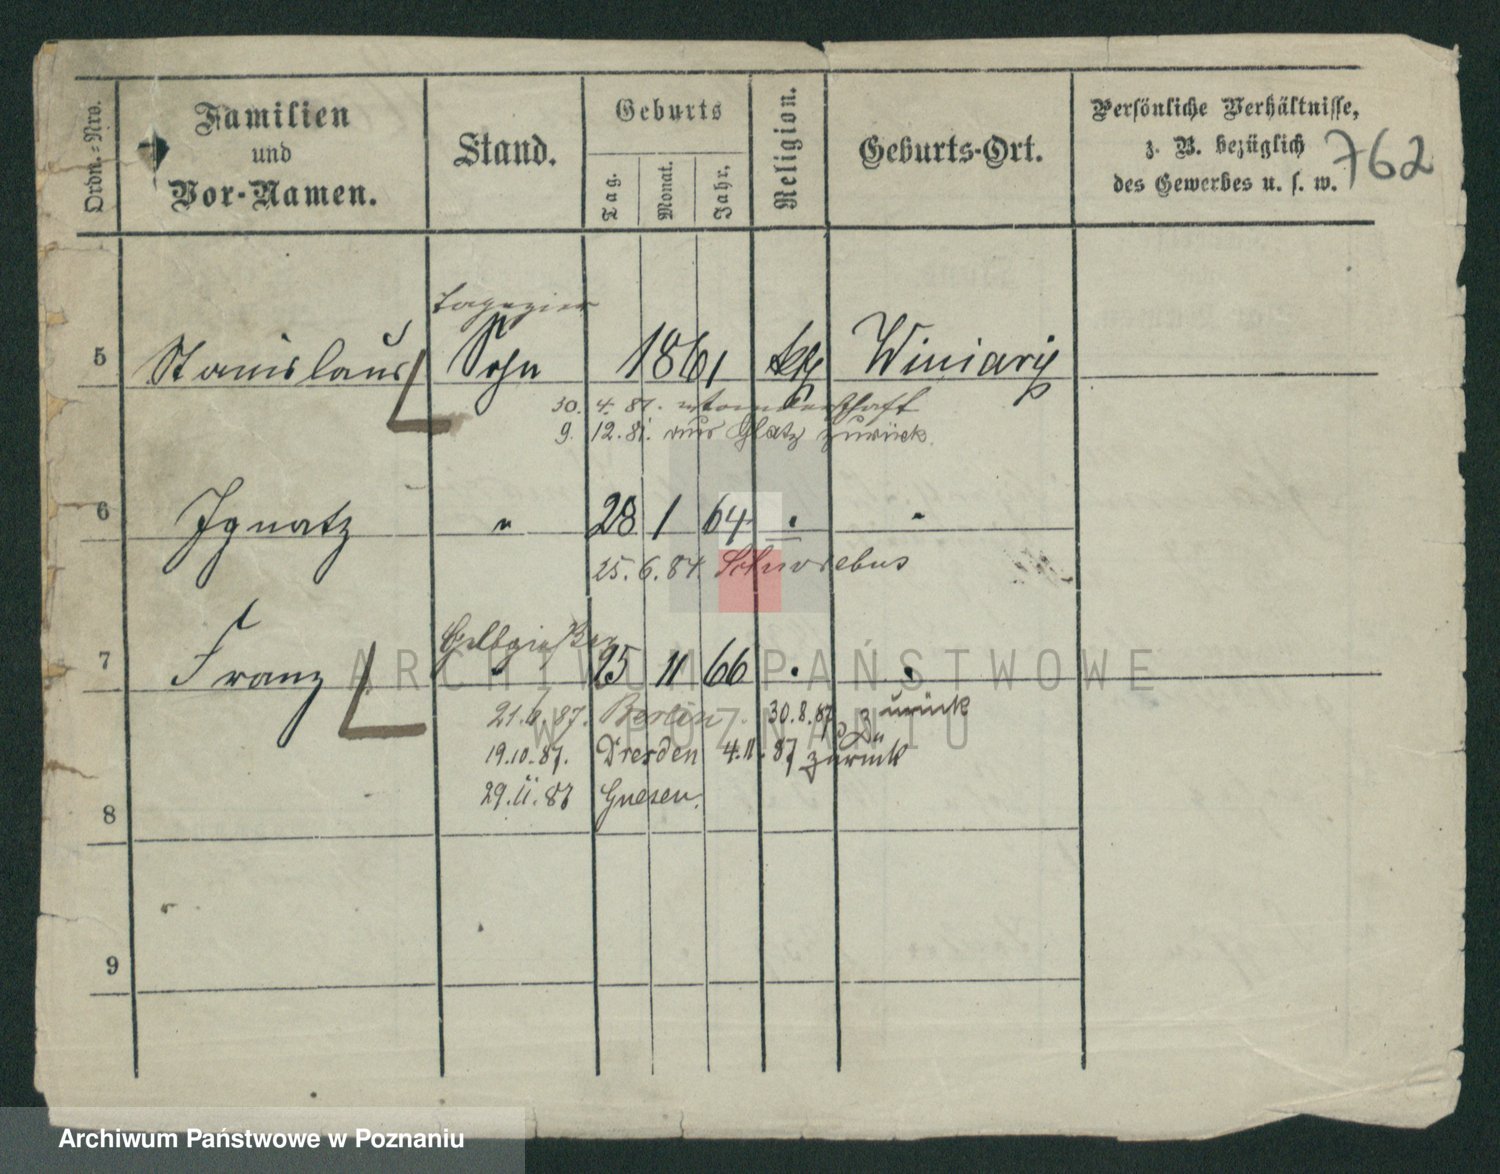 Ordn.-Nro.
Familien
und
Vor-Namen.
Stand.
Geburts
Tag.
Monat.
Jahr.
Religion.
Geburts-Ort.
Persönliche Verhältnisse,
z. B. bezüglich
des Gewerbes u. s. w.
762
Tapezier
5 Stanislaus Sohn 1861 kth Winiary
30. 4. 81. Wanderschaft
9. 12. 81. aus Glatz zurück.
6 Ignatz " 28 1 64 " "
25. 6. 84. Schwiebus
Gelbgießer
7 Franz " 25 11 66 " "
87. Berlin 30.8.87 zurück
19.10.87. Dresden 4.11.87 zurück
29.11.87 Gnesen.
8
9
ARCHIWUM PAŃSTWOWE
W POZNANIU
Archiwum Państwowe w Poznaniu